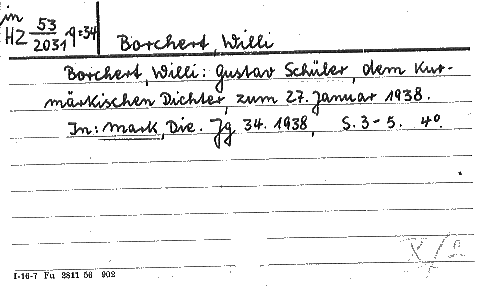 in
HZ 53/2031 q:34
Borchert, Willi
Borchert, Willi: Gustav Schüler, dem Kur-
märkischen Dichter, zum 27. Januar 1938.
In: Mark, Die. Jg 34. 1938, S. 3-5. 4°.
I-16-7 Fu 2811 56 902